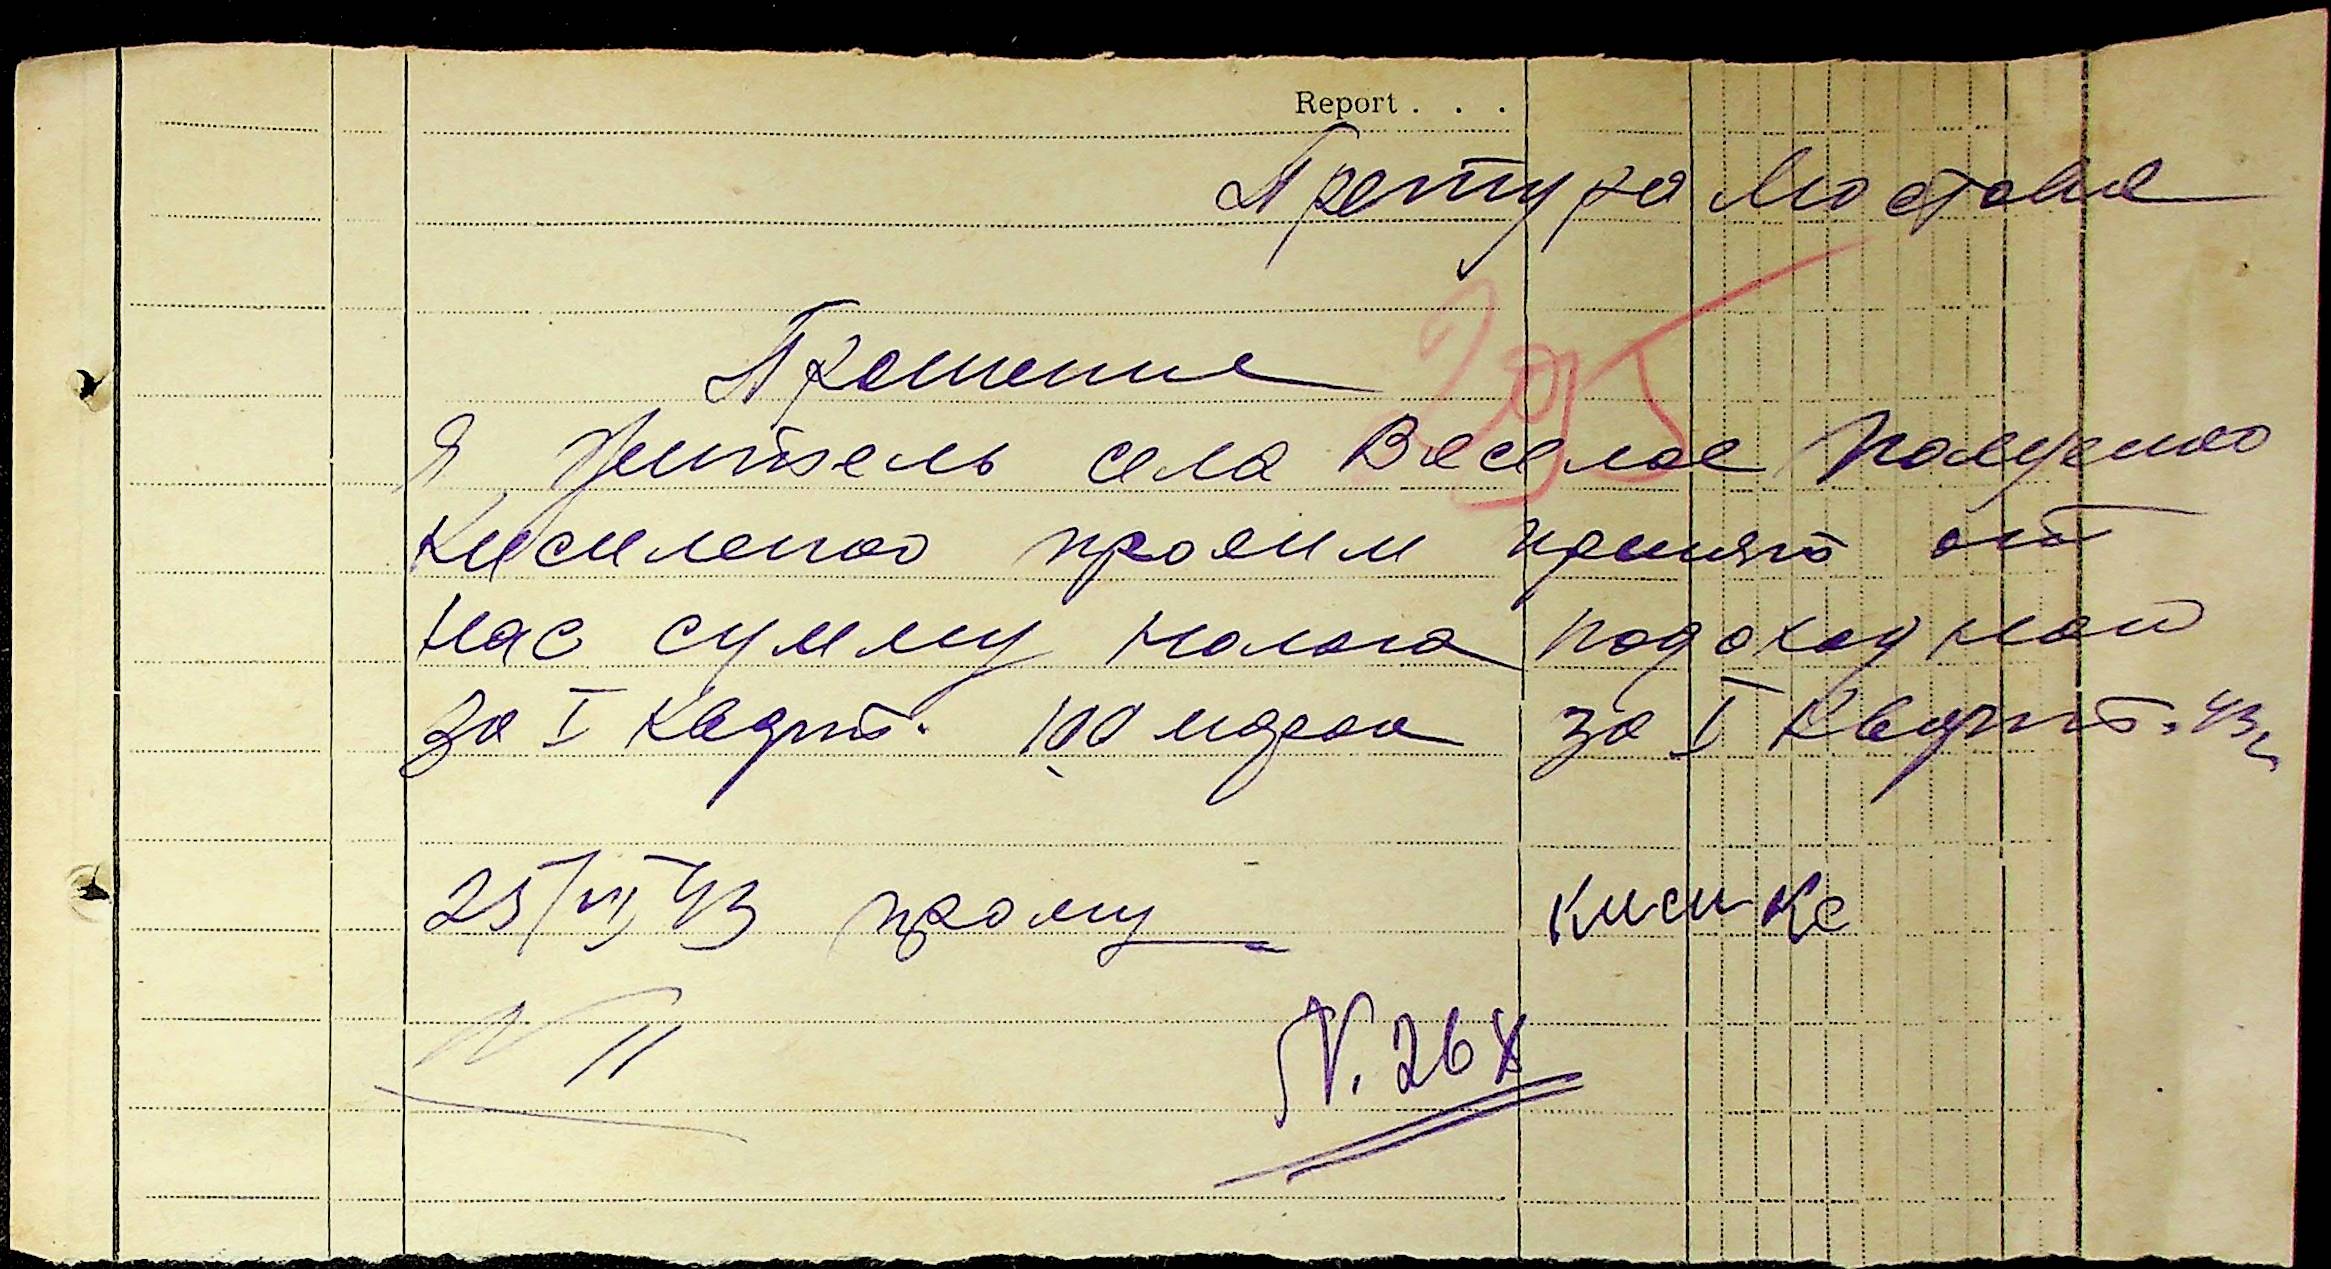 Report . . .
Претура Мостовое
295
Прошение
Я, житель села Веселое
Кисиленко просим принят от
нас сумму налога подоходной
за I Кварт. 100 марок за I Кварт. 43 г
25/VI 43 прошу Киси Ке
N 11
N. 26